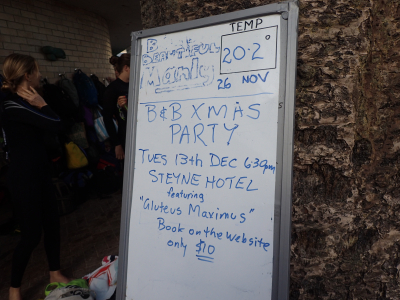 B
BEAUTIFUL
Manly
TEMP
20.2°
26 NOV
B&B XMAS
PARTY
TUES 13th DEC 630pm
STEYNE HOTEL
featuring
"Gluteus Maximus"
Book on the website
only $10